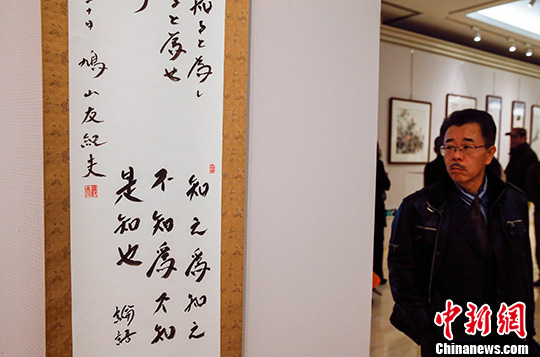 知ると為し
ると為せ
鳩山友紀夫
知之為知之
不知為不知
是知也
論語
中新网
Chinanews.com